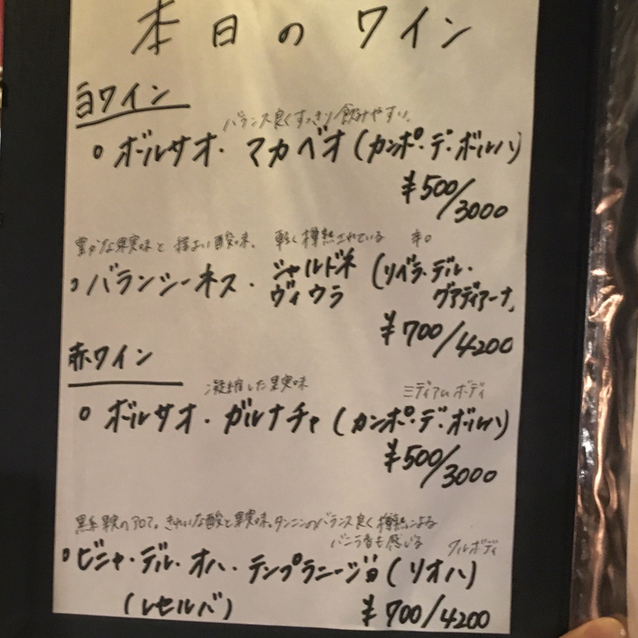 本日のワイン
白ワイン
バランス良くすっきり飲みやすい。
ボルサオ・マカベオ(カンポ・デ・ボルハ)
¥500/3000
豊かな果実味と程よい酸味。軽く樽熟されている 辛口
バランシーネス・シャルドネ ヴィウラ(リベラ・デル・グアディアーナ)
¥700/4200
赤ワイン
凝縮した果実味 ミディアムボディ
ボルサオ・ガルナチャ(カンポ・デ・ボルハ)
¥500/3000
黒系果実のアロマ。きれいな酸と果実味。タンニンのバランス良く樽熟による
バニラ香も感じる フルボディ
ビニャ・デル・オハ・テンプラニージョ(リオハ)
(レセルバ) ¥700/4200